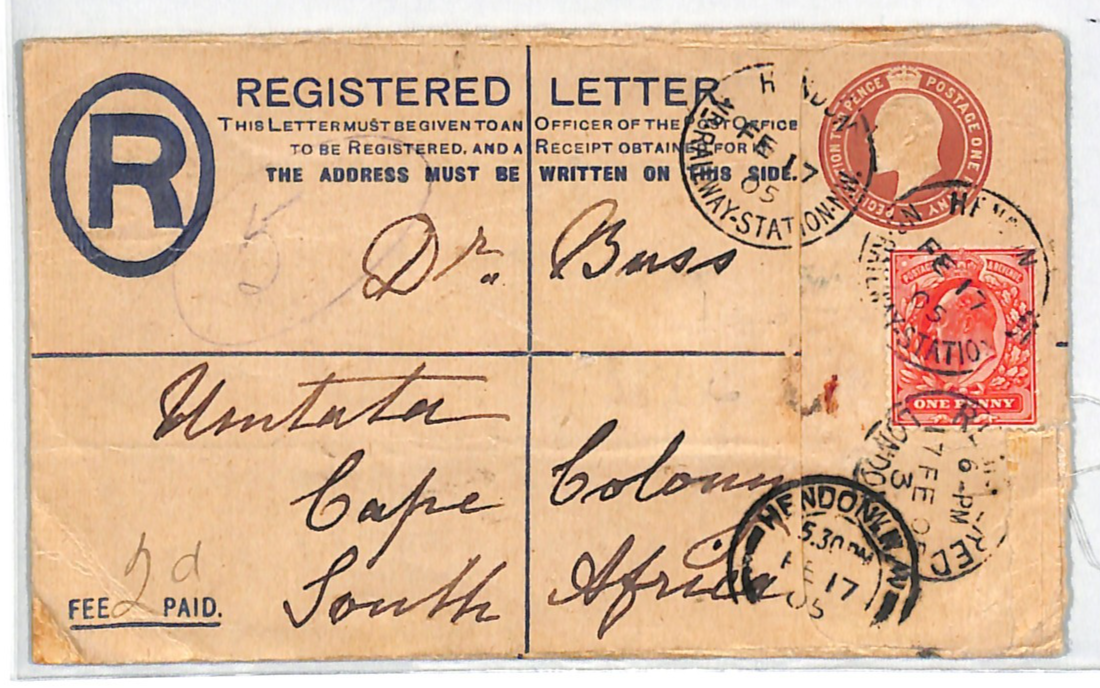 REGISTERED LETTER
THIS LETTER MUST BE GIVEN TO AN OFFICER OF THE POST OFFICE
TO BE REGISTERED, AND A RECEIPT OBTAINED FOR IT
THE ADDRESS MUST BE WRITTEN ON THIS SIDE.
R
POSTAGE ONE PENNY
HENDON
RAILWAY-STATION-N.W.
FE 17
05
5
Dr. Buss
HENDON
RAILWAY-STATION
FE 17
05
POSTAGE & REVENUE
ONE PENNY
Umtata
Cape Colony
South Africa
LONDON
6-PM
17 FE 05
3
HENDON N.W.
5.30 PM
FE 17
05
2d
FEE PAID.